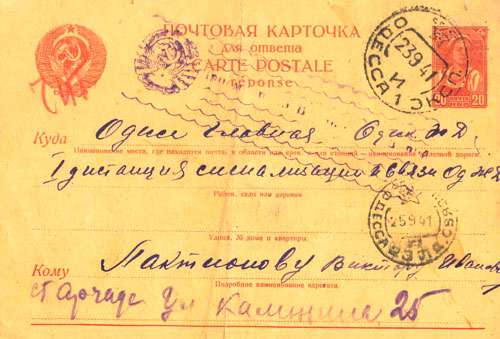 ПОЧТОВАЯ КАРТОЧКА
для ответа
CARTE POSTALE
réponse
ОДЕССА 1
23 9 41
И
20 ПОЧТА 20
Куда Одесс Главная Одск ж.д.
Наименование места, где находится почта, и области или края, а для станций — наименование железной дороги
1 дистанция сигнализации и связи Од жд
Район, село или деревня
ОДЕССА
25 9 41
Улица, № дома и квартиры
Кому Лактионову Виктору
Подробное наименование адресата
ул Калинина 25